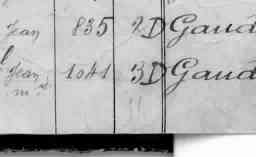 Jean 835 2D Gaud
Jean 1041 3D Gaud